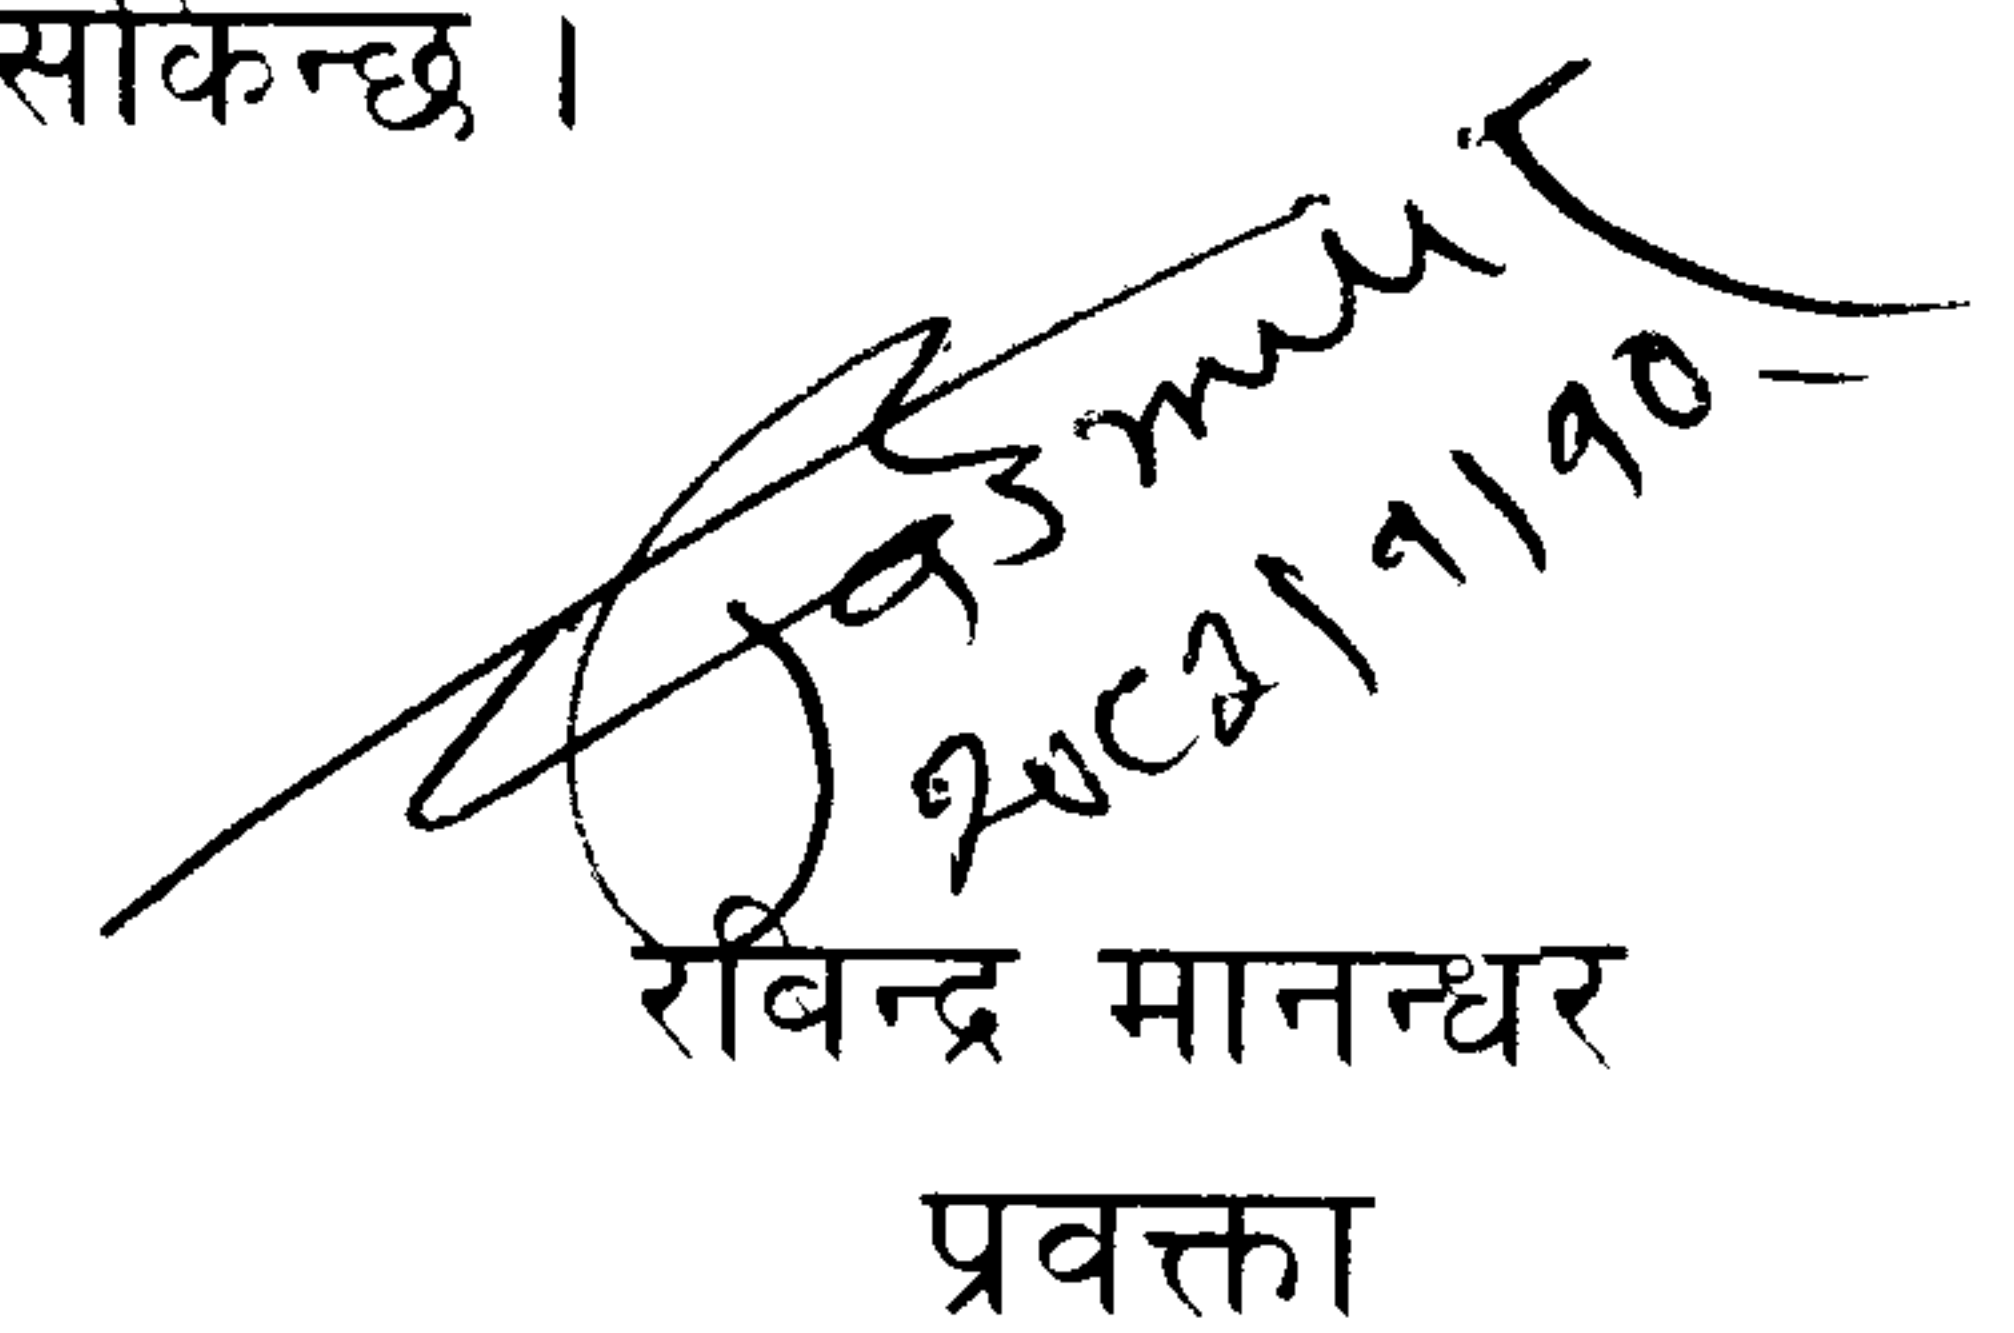 सकिन्छ ।
२०८२।१।१०
रबिन्द्र मानन्धर
प्रवक्ता